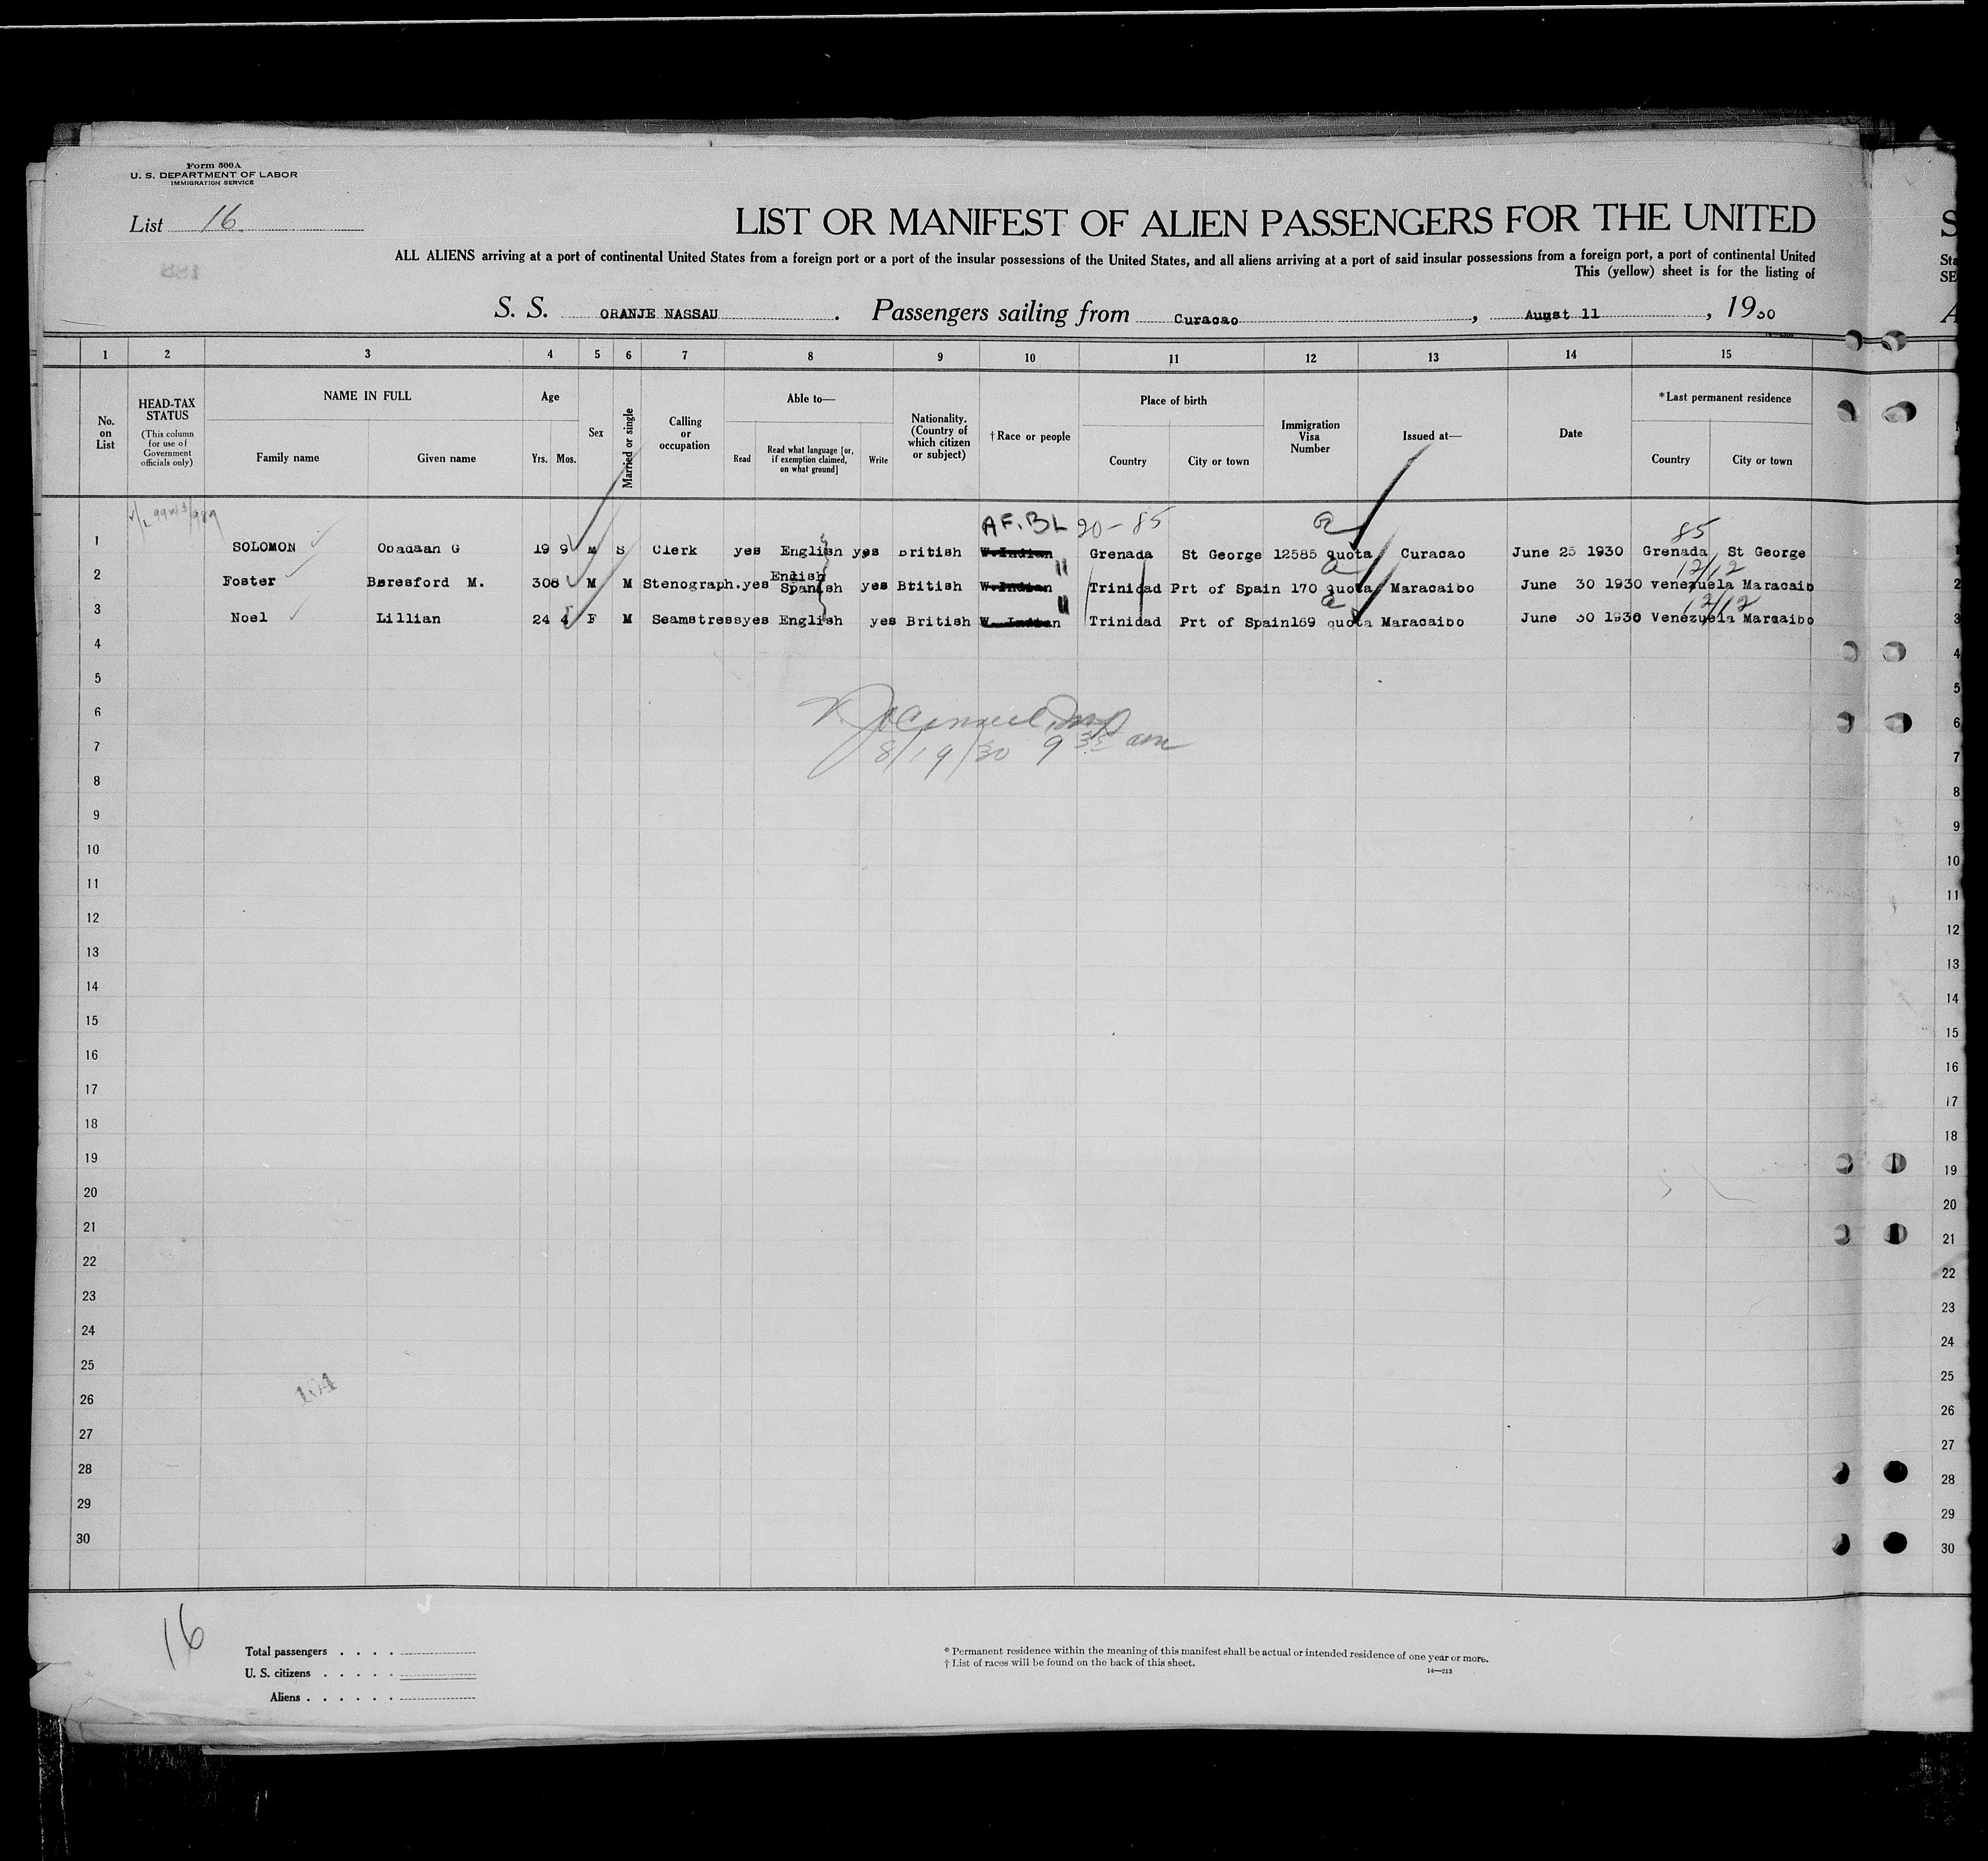 Form 500A
U. S. DEPARTMENT OF LABOR
IMMIGRATION SERVICE
List 16
LIST OR MANIFEST OF ALIEN PASSENGERS FOR THE UNITED
ALL ALIENS arriving at a port of continental United States from a foreign port or a port of the insular possessions of the United States, and all aliens arriving at a port of said insular possessions from a foreign port, a port of continental United
This (yellow) sheet is for the listing of
S. S. ORANJE NASSAU . Passengers sailing from Curacao , August 11 , 1930
1 2 3 4 5 6 7 8 9 10 11 12 13 14 15
No. on List
HEAD-TAX STATUS
(This column for use of Government officials only)
NAME IN FULL
Family name Given name
Age
Yrs. Mos.
Sex
Married or single
Calling or occupation
Able to—
Read
Read what language [or, if exemption claimed, on what ground]
Write
Nationality. (Country of which citizen or subject)
† Race or people
Place of birth
Country City or town
Immigration Visa Number
Issued at—
Date
*Last permanent residence
Country City or town
AF. BL 20-85 85
1 SOLOMON Obadaan G 19 9 M S Clerk yes English yes British W.Indian Grenada St George 12585 quota Curacao June 25 1930 Grenada St George
12/12
2 Foster Beresford M. 308 M M Stenograph. yes English Spanish yes British W.Indian " Trinidad Prt of Spain 170 quota Maracaibo June 30 1930 Venezuela Maracaib
12/12
3 Noel Lillian 24 4 F M Seamstress yes English yes British W. Indian " Trinidad Prt of Spain 169 quota Maracaibo June 30 1930 Venezuela Marcaibo
4
5
6
7
8/19/30 9 35 am
8
9
10
11
12
13
14
15
16
17
18
19
20
21
22
23
24
25
104
26
27
28
29
30
16
Total passengers . . . .
U. S. citizens . . . . .
Aliens . . . . . .
* Permanent residence within the meaning of this manifest shall be actual or intended residence of one year or more.
† List of races will be found on the back of this sheet.
14—213
S
Sta
SE
A
1
2
3
4
5
6
7
8
9
10
11
12
13
14
15
16
17
18
19
20
21
22
23
24
25
26
27
28
29
30